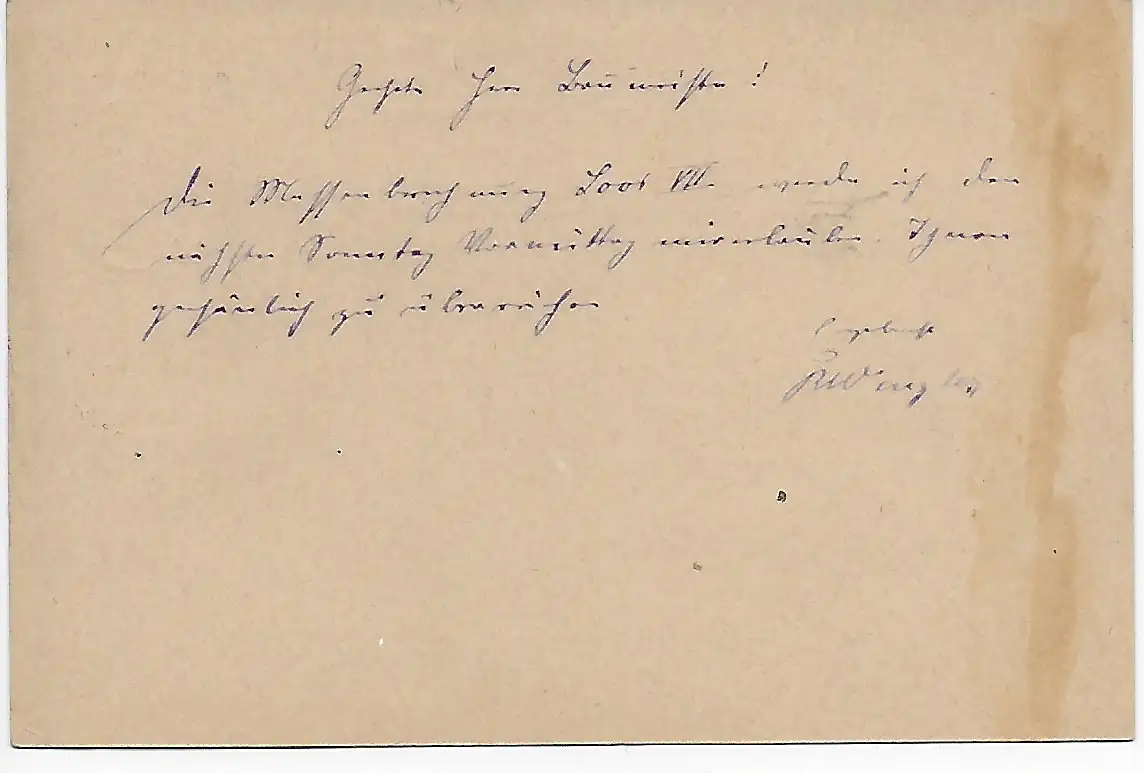 Geehrter Herr Baumeister!
Die Massenberechnung Loos VII. werde ich den
nächsten Sonntag Vormittag mir erlauben, Ihnen
persönlich zu überreichen
Ergebenst